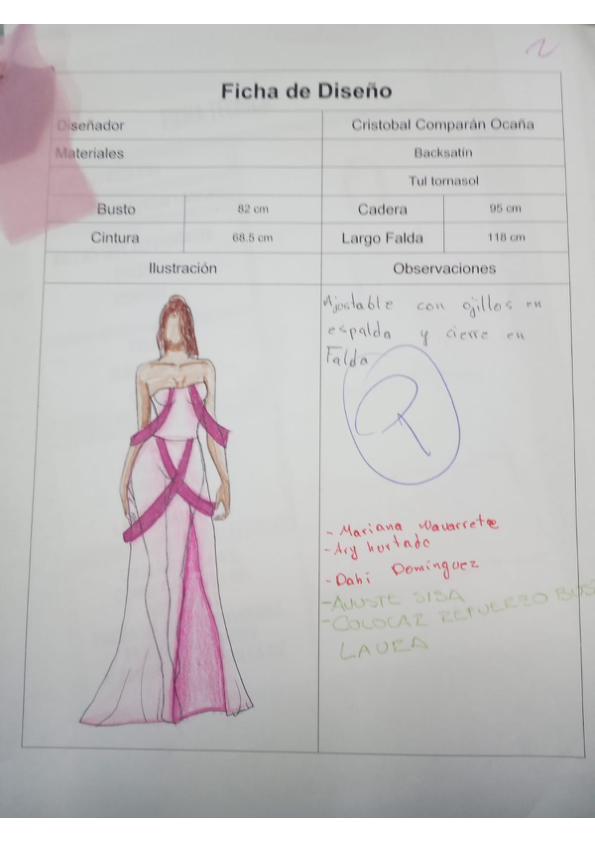 Ficha de Diseño
Diseñador Cristobal Comparán Ocaña
Materiales Backsatín
Tul tornasol
Busto 82 cm Cadera 95 cm
Cintura 68.5 cm Largo Falda 118 cm
Ilustración Observaciones
Ajustable con ojillos en
espalda y cierre en
Falda
R
- Mariana Navarrete
- Ary hurtado
- Dahi Dominguez
- AJUSTE SISA
- COLOCAR REFUERZO
LAURA